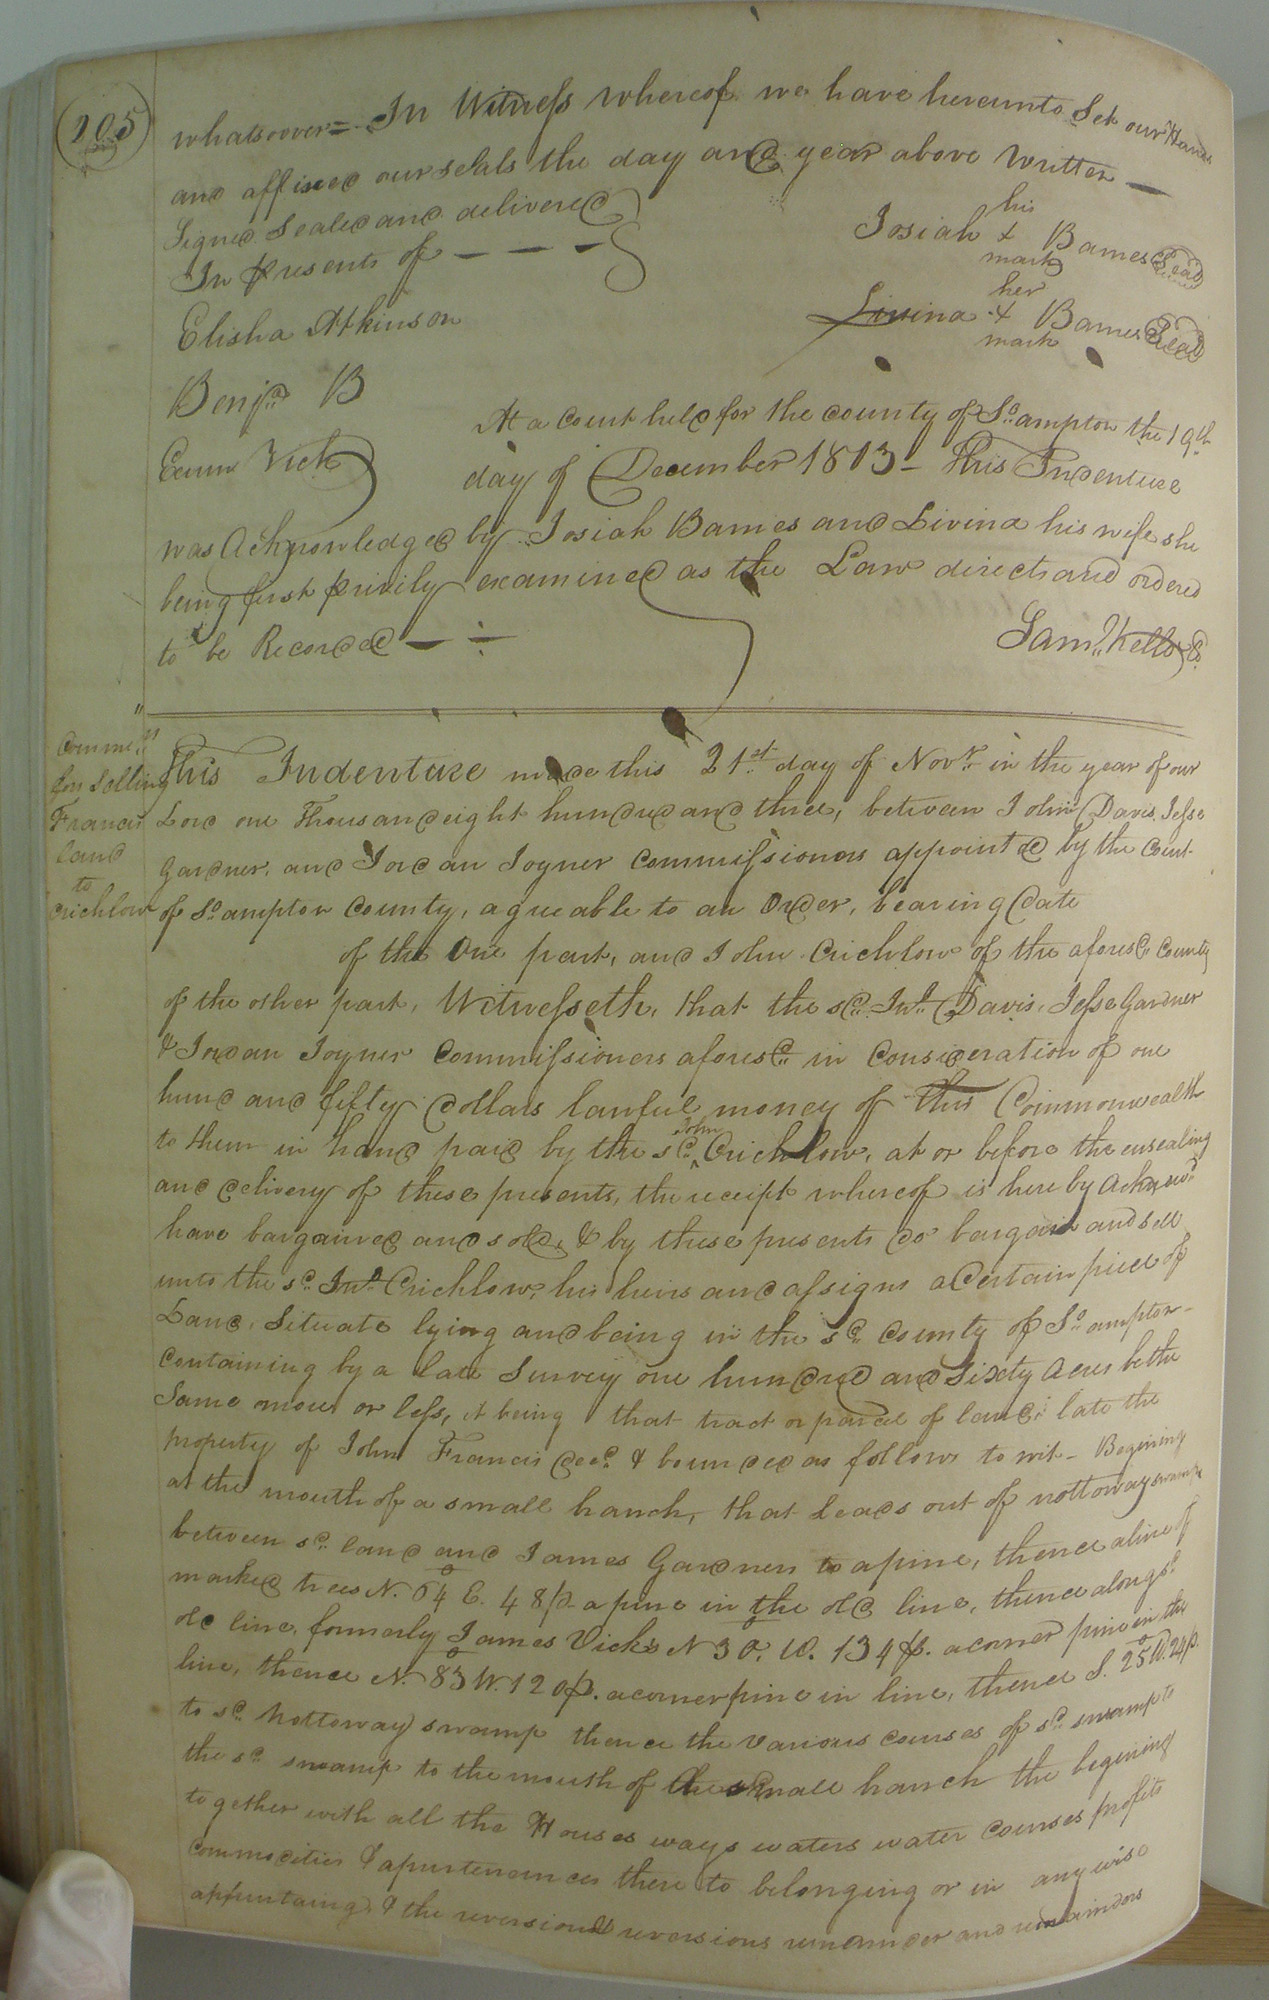 205
whatsoever = In Witness whereof we have hereunto Set our Hands
and affixed our seals the day and year above written —
Signed Sealed and delivered
In presents of — — —
his
Josiah + Barnes Seal
mark
her
Livina + Barnes Seal
mark
Elisha Atkinson
Benjn. B
Vick
At a Court held for the county of So.ampton the 19th
day of December 1803 — This Indenture
was Acknowledged by Josiah Barnes and Livina his wife she
being first privily examined as the Law directs and ordered
to be Recorded — ÷
Saml. Kello C.
Comms.
for selling
Francis
land
to
Crichlow
This Indenture made this 21st. day of Novr. in the year of our
Lord one Thousand eight hundred and three, between John Davis, Jesse
Gardner, and Jordan Joyner Commissioners appointed by the Court
of So.ampton County, agreeable to an Order, bearing date
of the One part, and John Crichlow of the aforesd. County
of the other part, Witnesseth, that the sd. Jno. Davis, Jesse Gardner
& Jordan Joyner Commissioners aforesd. in Consideration of one
hund and fifty dollars lawful money of this Commonwealth
to them in hand paid by the sd. John Crichlow, at or before the ensealing
and delivery of these presents, the receipt whereof is hereby Acknewd
have bargained and sold, & by these presents do bargain and sell
unto the sd. Jno. Crichlow, his heirs and assigns a Certain piece of
Land, Situate lying and being in the sd. County of So.ampton
Containing by a late Survey one hundred and Sixty Acres be the
Same more or less, it being that tract or parcel of land, late the
property of John Francis decd. & bounded as follows to wit — Begining
at the mouth of a small branch, that leads out of nottoway swamp
between sd. land and James Gardners to a pine, thence a line of
marked trees N. 64 E. 48 p. a pine in the old line, thence along sd.
old line, formerly James Vick's N 30. W. 134 p. a corner pine in the
line, thence N. 83 W. 120 p. a corner pine in line, thence S. 25 W. 24 p.
to sd. nottoway swamp thence the various courses of sd. swamp to
the sd. swamp to the mouth of the small branch the begining
together with all the Houses ways waters water courses profits
commodities & apurtenances there to belonging or in any wise
appurtaing, & the reversion & reversions remainder and remainders